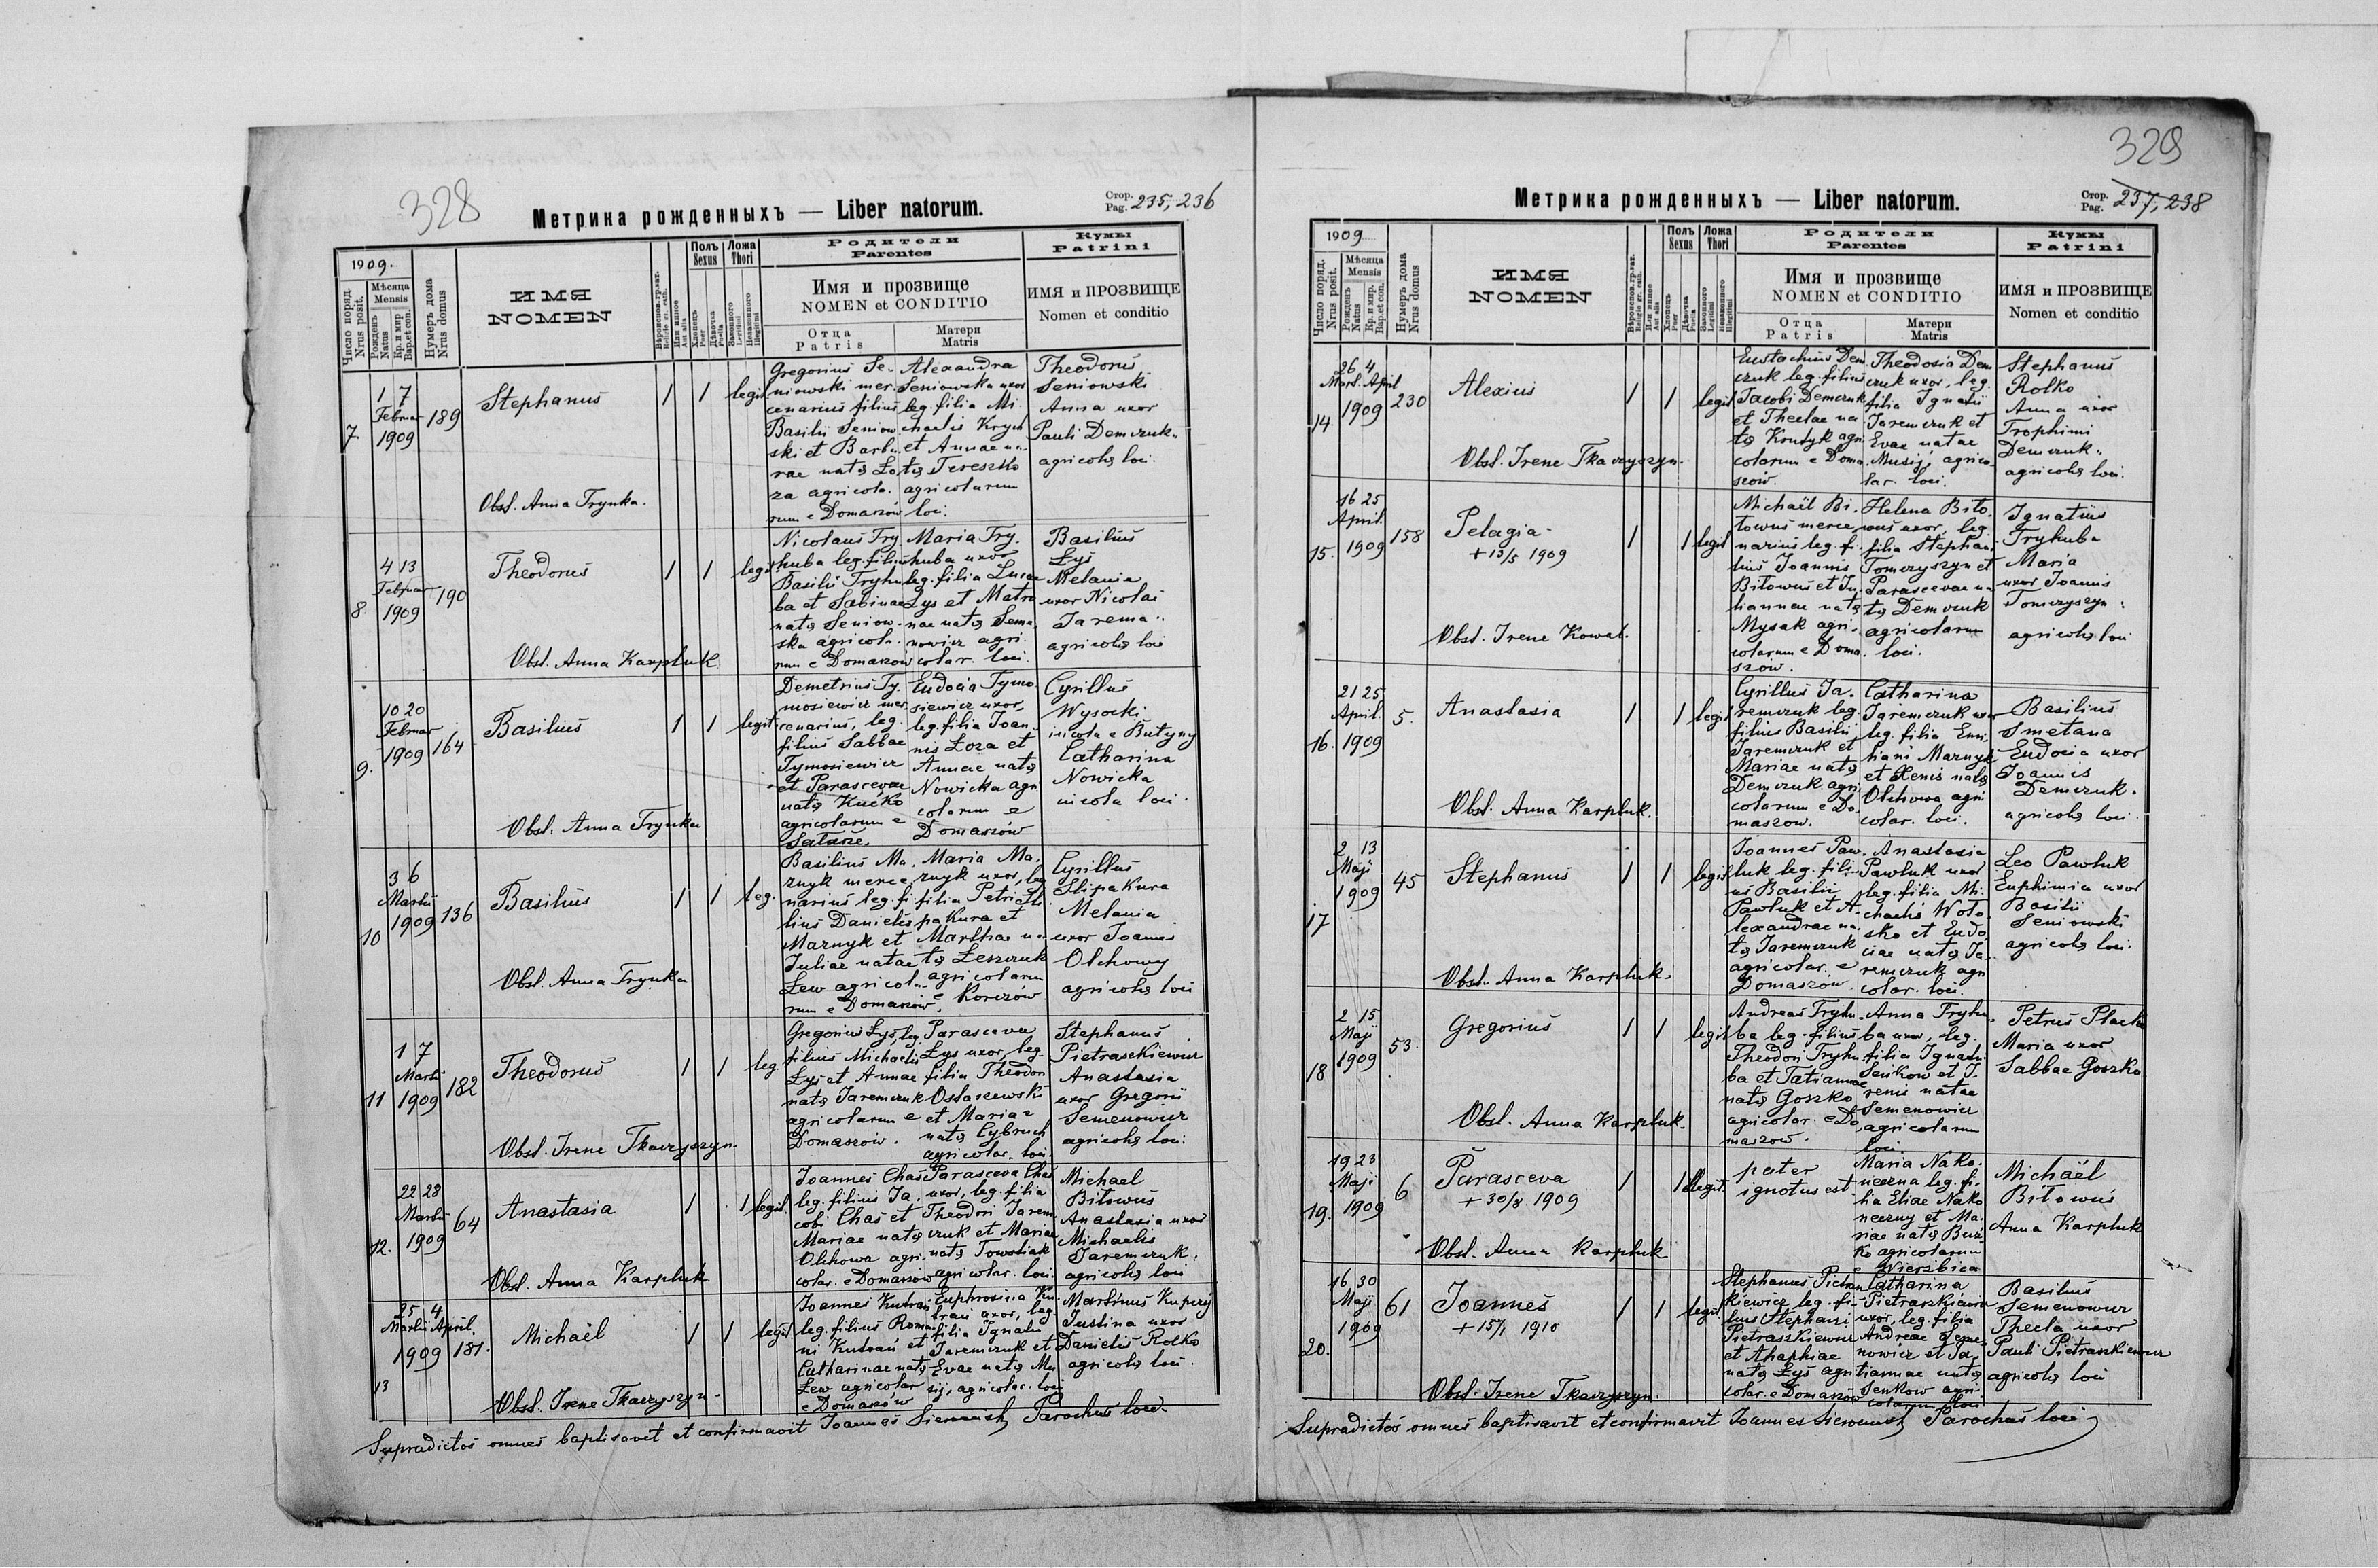 328
Метрика рожденныхъ — Liber natorum.
Стор. Pag. 235, 236
1909.
Число поряд. Nrus posit.
Мѣсяца Mensis
Рожденъ Natus
Кр. и мир Bap. et con.
Нумеръ дома Nrus domus
ИМЯ
NOMEN
Полъ Sexus
Ложа Thori
Родители
Parentes
Имя и прозвище
NOMEN et CONDITIO
Отца Patris
Матери Matris
Кумы
Patrini
ИМЯ и ПРОЗВИЩЕ
Nomen et conditio
7. 1 7 Februar 1909 189
Stephanus
1 1 legit
Gregorius Se-
niowski mer-
cenarius filius
Basilii Seniow
ski et Barba
rae natę Ło
za agricola-
rum e Domaszów
Alexandra
Seniowska uxor
leg. filia Mi-
chaelis Krych
et Annae na-
tę Tereszko
agricolarum
loci.
Theodorus
Seniowski
Anna uxor
Pauli Demczuk
agricolę loci.
Obst. Anna Trynka.
8. 4 13 Februar 1909 190
Theodorus
1 1 legit
Nicolaus Try
huba leg. filius
Basilii Tryhu
ba et Sabinae
natę Seniow-
ska agricola-
rum e Domaszów
Maria Try-
huba uxor
leg. filia Lucae
Łys et Matro
nae natę Seme
nowicz agri-
colar. loci.
Basilius
Łys
Melania
uxor Nicolai
Jarema
agricolę loci
Obst. Anna Karpluk
9. 10 20 Februar 1909 164
Basilius
1 1 legit
Demetrius Ty-
mosiewicz mer
cenarius, leg.
filius Sabbae
Tymosiewicz
et Parascevae
natę Kućko
agricolarum e
Salasze.
Eudocia Tymo
siewicz uxor,
leg. filia Joan-
nis Łoza et
Annae natę
Nowicka agri
colarum e
Domaszów
Cyrillus
Wysocki
incola e Butyny
Catharina
Nowicka
incola loci.
Obst. Anna Trynka
10 3 6 Martii 1909 136
Basilius
1 1 leg.
Basilius Ma-
znyk merce
narius leg. fi
lius Danielis
Maznyk et
Juliae natae
Łew agricola-
rum e Domaszów
Maria Ma-
znyk uxor, leg
filia Petri Śli
pakura et
Marthae na-
tę Leszczuk
agricolarum
e Korczów
Cyrillus
Slipakura
Melania
uxor Joannis
Olchowy
agricolę loci
Obst. Anna Trynka
11 1 7 Martii 1909 182
Theodorus
1 1 leg.
Gregorius Łys, leg.
filius Michaelis
Łys et Annae
natę Jaremczuk
agricolarum e
Domaszów.
Parasceva
Łys uxor, leg.
filia Theodori
Ostaszewski
et Mariae
natę Cybruch
agricolar. loci.
Stephanus
Pietraszkiewicz
Anastasia
uxor Gregorii
Semenowicz
agricolę loci.
Obst. Irene Tkaczyszyn.
12. 22 28 Martii 1909 64
Anastasia
1 1 legit.
Joannes Chaś
leg. filius Ja-
cobi Chaś et
Mariae natę
Olchowa agri-
colar. e Domaszów
Parasceva Chaś
uxor, leg. filia
Theodori Jarem
czuk et Mariae
natę Towstiak
agricolar. loci.
Michael
Bitowus
Anastasia uxor
Michaelis
Jaremczuk.
agricolę loci
Obst. Anna Karpluk
13 25 4 Martii April. 1909 181.
Michaël
1 1 legit
Joannes Kutrań
leg. filius Roma
ni Kutrań et
Catharinae natę
Łew agricolar
e Domaszów
Euphrosina Ku
trań uxor, leg
filia Ignatii
Jaremczuk et
Evae natę Mu
sij, agricolar. loci
Martinus Kuprij
Justina uxor
Danielis Rolko
agricolę loci.
Obst. Irene Tkaczyszyn-
Supradictos omnes baptisavit et confirmavit Joannes Parochus loci.
329
Метрика рожденныхъ — Liber natorum.
Стор. Pag. 237, 238
1909
Число поряд. Nrus posit.
Мѣсяца Mensis
Рожденъ Natus
Кр. и мир. Bap. et con.
Нумеръ дома Nrus domus
ИМЯ
NOMEN
Полъ Sexus
Ложа Thori
Родители
Parentes
Имя и прозвище
NOMEN et CONDITIO
Отца Patris
Матери Matris
Кумы
Patrini
ИМЯ и ПРОЗВИЩЕ
Nomen et conditio
14. 26 4 Mart. April 1909 230
Alexius
1 1 legit
Eustachius Dem
czuk leg. filius
Jacobi Demczuk
et Theclae na
tę Kondyk agri
colarum e Doma
szów.
Theodosia Dem
czuk uxor, leg.
filia Ignatii
Jaremczuk et
Evae natae
Musij, agrico-
lar. loci.
Stephanus
Rolko
Anna uxor
Trophimi
Demczuk
agricolę loci.
Obst. Irene Tkaczyszyn.
15. 16 25 April. 1909 158
Pelagia
+ 13/5 1909
1 1 legit
Michaël Bi-
towus merce
narius leg. fi-
lius Joannis
Bitowus et Ju-
liannae natę
Mysak agri-
colarum e Doma-
szów.
Helena Bito-
wus uxor, leg.
filia Stephani
Tomczyszyn et
Parascevae na
tę Demczuk
agricolarum
loci.
Ignatius
Tryhuba
Maria
uxor Joannis
Tomczyszyn
agricolę loci
Obst. Irene Kowal.
16. 21 25 April. 1909 5.
Anastasia
1 1 legit
Cyrillus Ja-
remczuk leg.
filius Basilii
Jaremczuk et
Mariae natę
Demczuk agri
colarum e Do-
maszow.
Catharina
Jaremczuk uxor
leg. filia Emi-
liani Maznyk
et Xenis natę
Olchowa agri
colar. loci.
Basilius
Smetana
Eudocia uxor
Joannis
Demczuk.
agricolę loci.
Obst. Anna Karpluk.
17 2 13 Maji 1909 45
Stephanus
1 1 legit
Joannes Paw-
luk leg. fili-
us Basilii
Pawluk et A-
lexandrae na-
tę Jaremczuk
agricolar. e
Domaszów.
Anastasia
Pawluk uxor
leg. filia Mi-
chaelis Woło-
sko et Eudo
ciae natę Ja-
remczuk agri
colar. loci.
Leo Pawluk
Euphimia uxor
Basilii
Seniowski
agricolę loci.
Obst. Anna Karpluk.
18 2 15 Maji 1909 53.
Gregorius
1 1 legit
Andreas Tryhu-
ba leg. filius
Theodori Tryhu
ba et Tatiannae
natę Goszko
agricolar. e Do
maszow.
Anna Tryhu-
ba uxor, leg.
filia Ignatii
Seńkow et I-
renis natae
Semenowicz
agricolarum
loci.
Petrus Placko
Maria uxor
Sabbae Goszko
Obst. Anna Karpluk.
19. 19 23 Maji 1909 6
Parasceva
+ 30/8 1909
1 1 illegit.
pater
ignotus est
Maria Nako-
neczna leg. fi-
lia Eliae Nako
neczny et Ma-
riae natę Buź-
ko agricolarum
e Wierzbica
Michaël
Bitowus
Anna Karpluk
Obst. Anna Karpluk
20. 16 30 Maji 1909 61
Joannes
+ 15/1 1910
1 1 legit
Stephanus Pietrasz
kiewicz leg. fi-
lius Stephani
Pietraszkiewicz
et Ahaphiae
natę Łyś agri
colar. e Domaszów
Catharina
Pietraszkiewicz
uxor, leg. filia
Andreae Seme-
nowicz et Ta-
tiannae natę
Senkow agri-
colarum loci
Basilius
Semenowicz
Thecla uxor
Pauli Pietraszkiewicz
agricolę loci
Obst. Irene Tkaczyszyn.
Supradictos omnes baptisavit et confirmavit Joannes Parochus loci